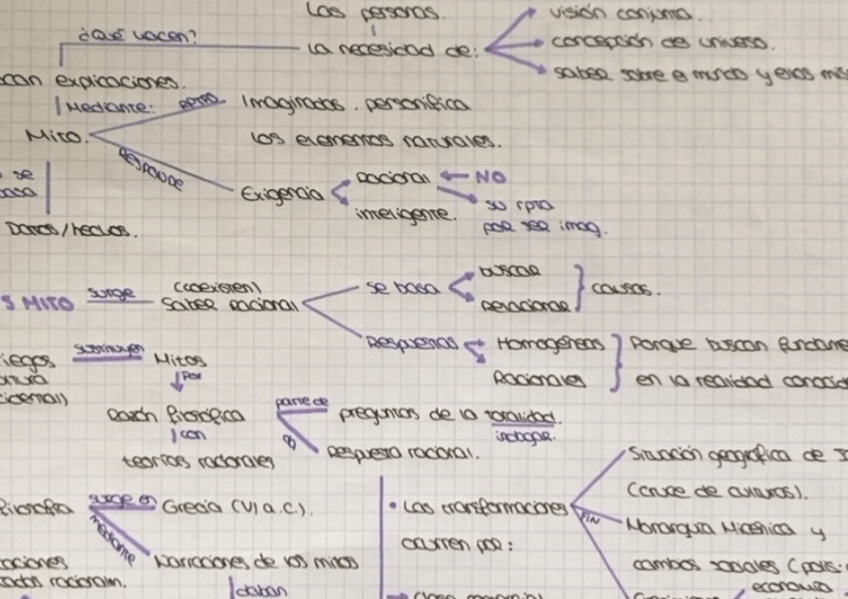 Las personas.
visión conjunta.
¿Qué hacen?
La necesidad de:
concepción del universo.
saber sobre el mundo y ellos
explicaciones.
Mediante:
Imaginados. personifica
Mito.
los elementos naturales.
responde
se
basa
Exigencia
racional
NO
inteligente.
su rpta
por ser imag.
Datos/hechos.
MITO
surge
(coexisten)
Saber racional
se basa
buscar
relacionar
causas.
Respuestas
Homogéneas
Racionales
Porque buscan
en la realidad
sustituyen
Mitos
por
Razón filosófica
parte de
preguntas de la totalidad.
indagar.
con
teorías racionales
Respuesta racional.
Situación geográfica de
(cruce de culturas).
Filosofía
surge en
Grecia (VI a.C.).
• Las transformaciones
ocurren por:
FIN
Monarquía Micénica y
cambios sociales (polis:
economía
mediante
Narraciones de los mitos
daban
racionalm.